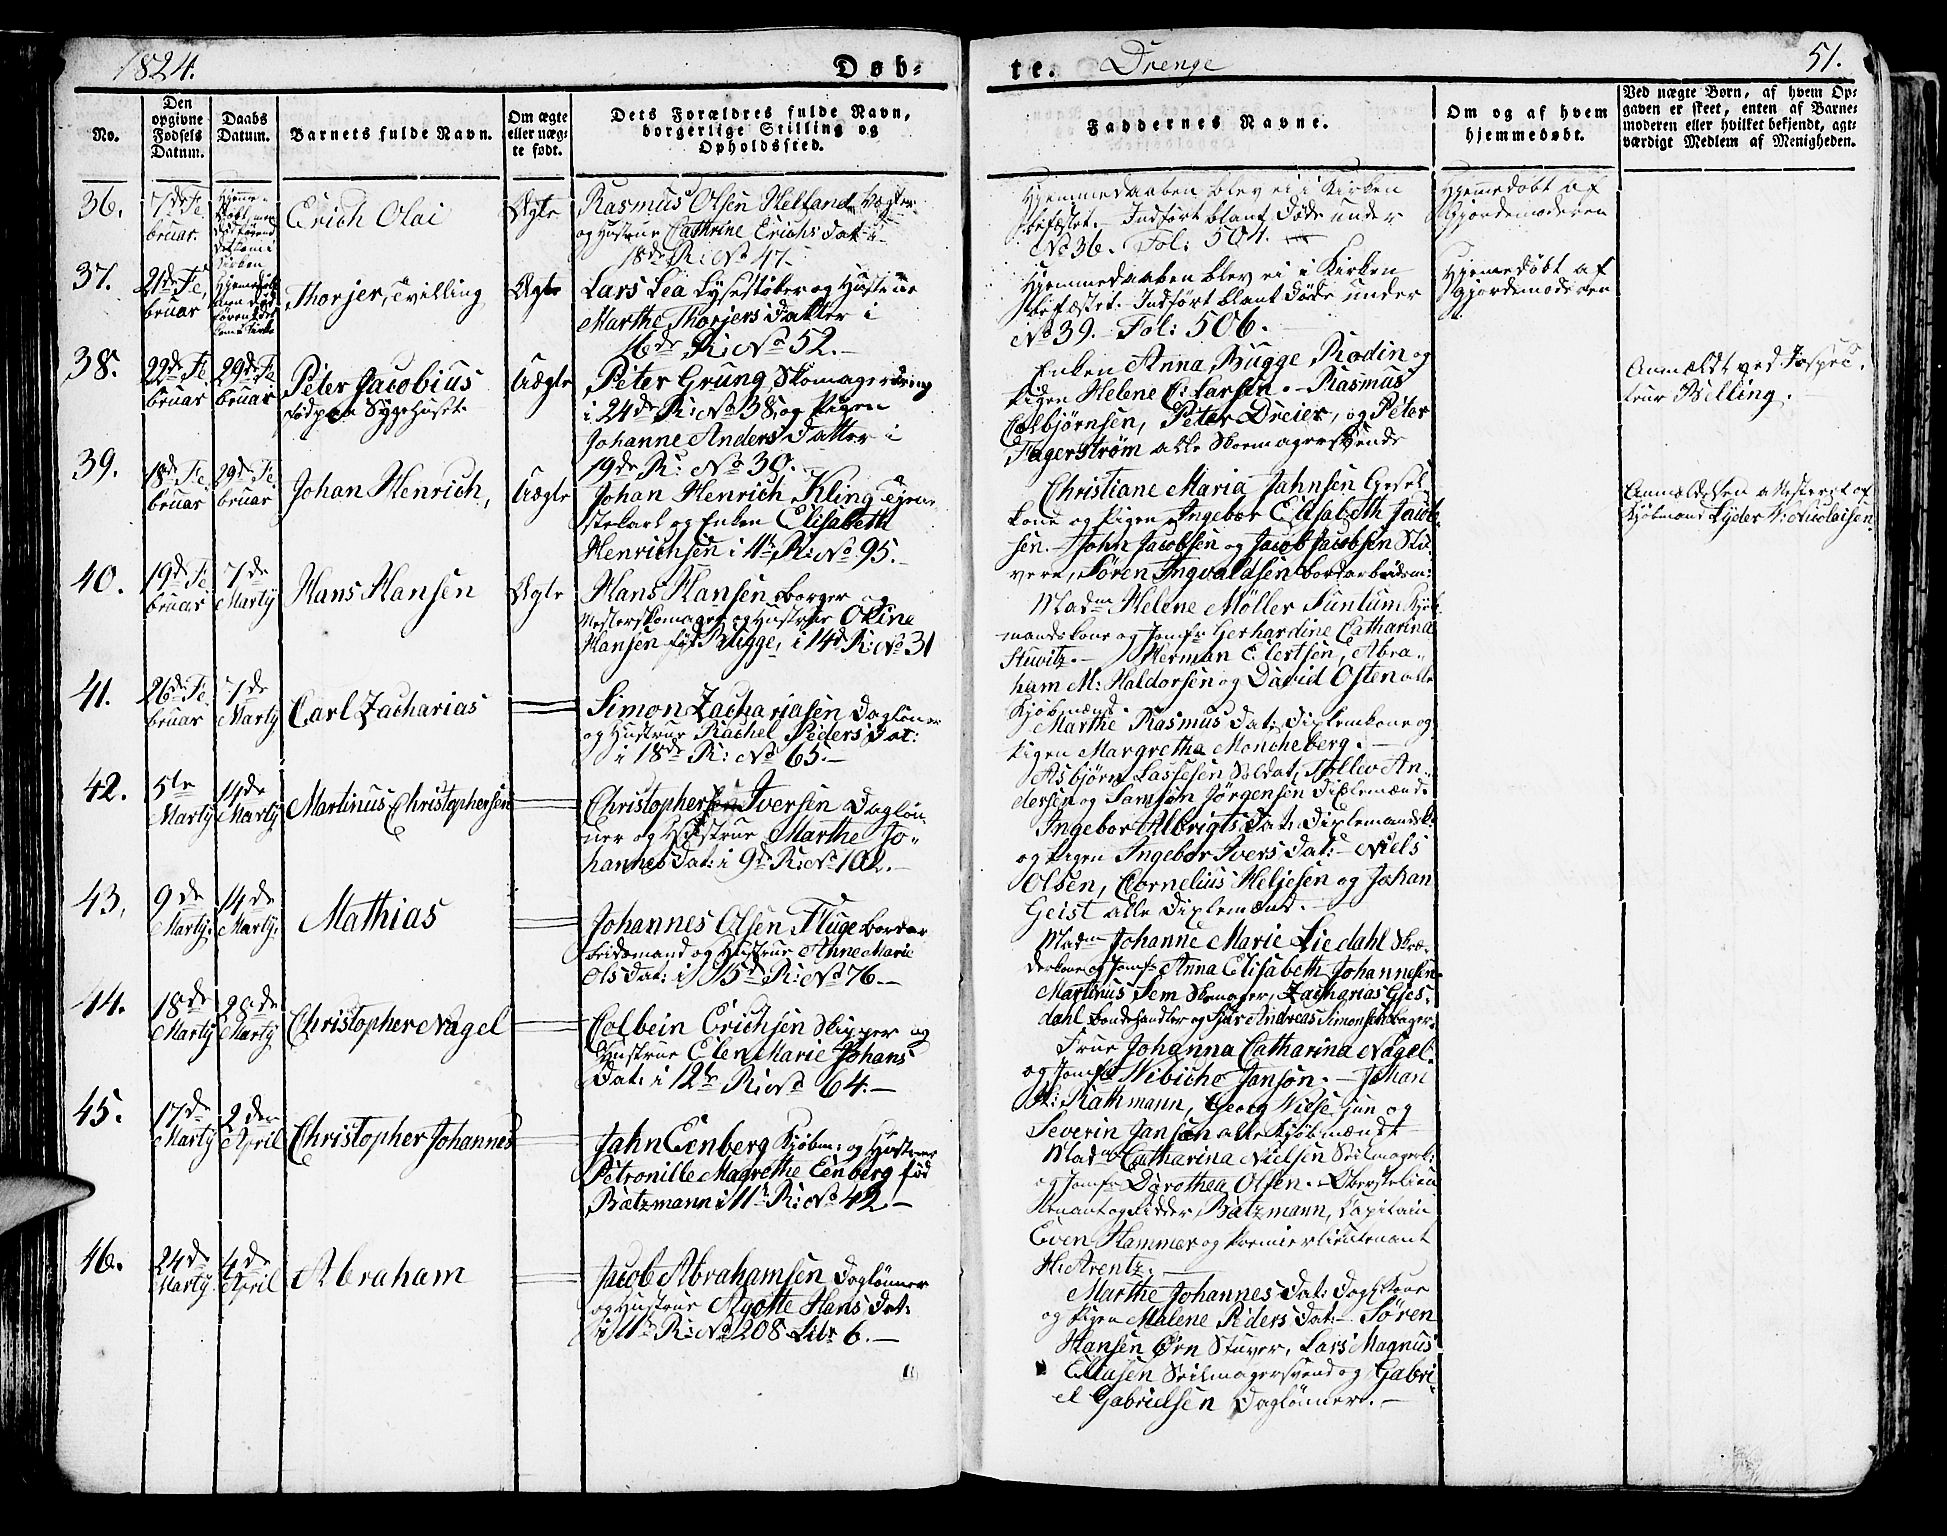 1824.
Døb-
te.
Drenge
51.
No.
Den
opgivne
Fødsels
Datum.
Daabs
Datum.
Barnets fulde Navn.
Om ægte
eller uæg-
te født.
Dets Forældres fulde Navn,
borgerlige Stilling og
Opholdssted.
Faddernes Navne.
Om og af hvem
hjemmedøbt.
Ved uægte Børn, af hvem Op-
gaven er skeet, enten af Barne-
moderen eller hvilket bekjendt, agt-
værdigt Medlem af Menigheden.
36.
7de Fe
bruar
Erich Olai
Ægte
Rasmus Olsen Helland Vægter
og Hustrue Cathrine Erichs Dat: i
18de R: No 47.
Hjemmedaaben blev ei i Kirken
Indført blant Døde under
No 36. Fol: 504.
Hjemedøbt af
Gjordemoderen
37.
21de Fe
bruar
Thorjer, Tvilling
Ægte
Lars Lea Lysestøber og Hustrue
Marthe Thorjers Datter i
16de R: No 52.—
Hjemmedaaben blev ei i Kirken
Indført blant Døde under
No 39. Fol: 506.
Hjemedøbt af
Gjordemoderen
38.
22de Fe
bruar
29de Fe
bruar
Peter Jacobius
fød paa Sygehuset
Uægte
Peter Grung Skomagerdreng
i 24de R: No 38, og Pigen
Johanne Anders Datter i
19de R: No 30.
Enken Anna Bugge Rodin og
Pigen Helene C: Larsen.— Rasmus
Colbjørnsen, Peter Dreier, og Peter
Fagerstrøm alle Skomagersvende
Anmældt ved Inspec-
teur Belling.
39.
18de Fe
bruar
29de Fe
bruar
Johan Henrich,
Uægte
Johan Henrich Kling Tjene-
stekarl og Enken Elisabeth
Henrichsen i 11te R: No 95.—
Christiane Maria Jahnsen Gesel-
kone og Pigen Ingebor Elisabeth Jacob-
sen.— John Jacobsen og Jacob Jacobsen Stu-
vere, Søren Ingvaldsen bordarbeidsm:
Anmeldelsen attesteret af
Kjøbmand Lyder W: Nicolaisen
40.
19de Fe
bruar
7de
Martij
Hans Hansen
Ægte
Hans Hansen Borger og
Mesterskomager og Hustrue Oline
Hansen fød Bugge, i 14d R: No 31
Madm Helene Møller Suntum Kjøb-
mandskone og Jomfr Gerhardine Catharina
Stuwitz.— Herman Ellertsen, Abra-
ham M: Haldorsen og David Osten alle
Kjøbmænd.
41.
26de Fe
bruar
7de
Martij
Carl Zacharias
Simon Zachariasen Dagløner
og Hustrue Rachel Peders Dat:
i 18de R: No 65.—
Marthe Rasmus Dat: Diplemkone og
Pigen Margretha Moncheberg.—
Asbjørn Lassesen Soldat, Tollev An-
dersen og Samson Jørgensen Diplemænd.
42.
5te
Martij
14de
Martij
Martinus Christophersen
Christophersen Iversen Dagløn-
ner og Hustrue Marthe Jo-
hannes Dat: i 9de R: No 102.—
Ingebor Albrigts Dat: Diplemandsk:
og Pigen Ingebor Ivers Dat:— Niels
Olsen, Cornelius Heljesen og Johan
Geist alle Diplemænd.—
43.
9de
Martij.
14de
Martij.
Mathias
Johannes Olsen Fluge bordar-
beidsmand og Hustrue Anne Marie
Ols Dat: i 15d R: No 76.—
Madm Johanne Marie Liedahl Skræ-
derkone og Jomfr Anna Elisabeth Johannesen
Martinus Sem Skomager, Zacharias Gjes-
dahl Bondehandler og Andreas Simonsen Bager.
44.
18de
Martij
28de
Martij
Christopher Nagel
Colbein Erichsen Skipper og
Hustrue Elen Marie Johans
Dat: i 12te R: No 64.—
Frue Johanna Catharina Nagel
og Jomfr Wibiche Janson.— Johan
H: Rathmann, Georg Wiese jun og
Severin Janson alle Kjøbmænd
45.
17de
Martij
2den
April
Christopher Johannes
Jahn Eenberg Kjøbm: og Hustrue
Petronille Magrethe Eenberg fød
Batzmann i 11te R: No 42—
Madm Catharina Nielsen Seilmagerk:
og Jomfr Dorothea Olsen.— Oberstelieu-
tenant og Ridder, Batzmann, Capitain
Even Hammer og Premierlieutenant
H: Arentz.—
46.
24de
Martij
4de
April
Abraham
Jacob Abrahamsen Daglønner
og Hustrue Agotte Hans Dat:
i 11te R: No 208 Litr 6.—
Marthe Johannes Dat:
og Pigen Malene Peders Dat:— Søren
Hansen Ørn Stuver, Lars Magnus
Eliasen Seilmagersvend og Gabri-
el Gabrielsen Daglønnere.—